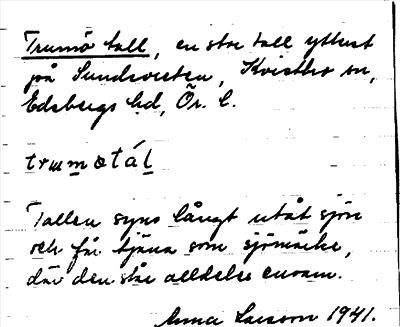 Trumö tall, en stor tall ytterst
på Sundsviken, Kvistbro sn,
Edsbergs hd, Ör. l.
trumotál
Tallen syns långt utåt sjön
och får tjäna som sjömärke,
där den står alldeles ensam.
Anna Larsson 1941.